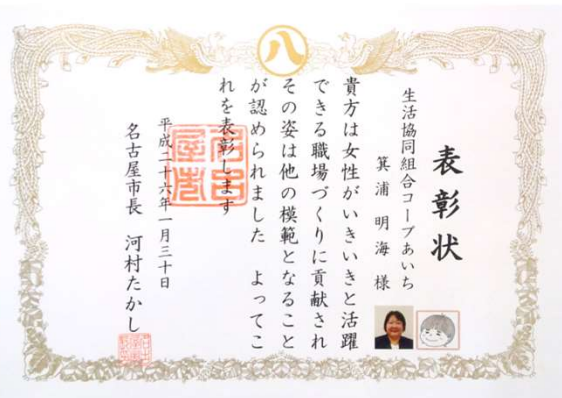 八
表彰状
生活協同組合コープあいち
箕浦明海様
貴方は女性がいきいきと活躍
できる職場づくりに貢献され
その姿は他の模範となること
が認められました　よってこ
れを表彰します
平成二十六年一月三十日
名古屋市長　河村たかし